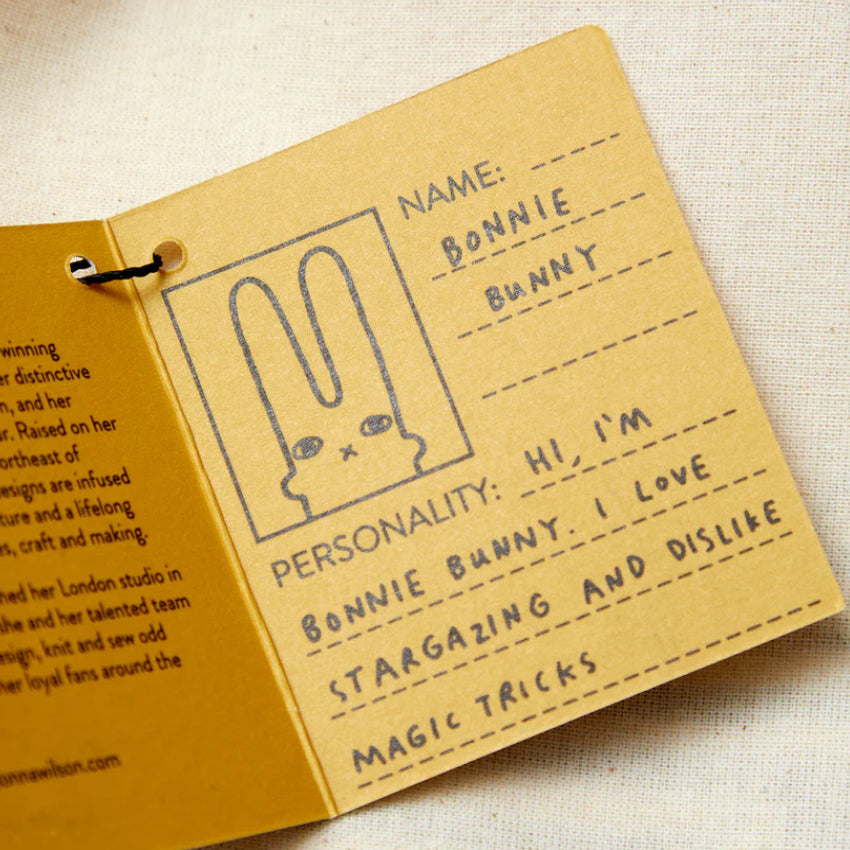 winning
distinctive
n, and her
Raised on her
ortheast of
esigns are infused
ture and a lifelong
craft and making.
hed her London studio in
she and her talented team
esign, knit and sew odd
her loyal fans around the
onnawilson.com
NAME:
BONNIE
BUNNY
PERSONALITY: HI, I'M
BONNIE BUNNY. I LOVE
STARGAZING AND DISLIKE
MAGIC TRICKS